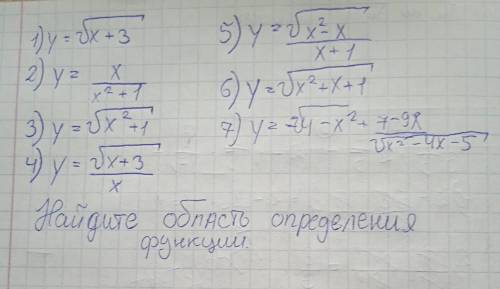 1) y = √x+3
2) y = x / x² + 1
3) y = √x² + 1
4) y = √x+3 / x
5) y = √x² - x / x + 1
6) y = √x² + x + 1
7) y = -√4 - x² + 7-9x / √x² - 4x - 5
Найдите область определения
функции.